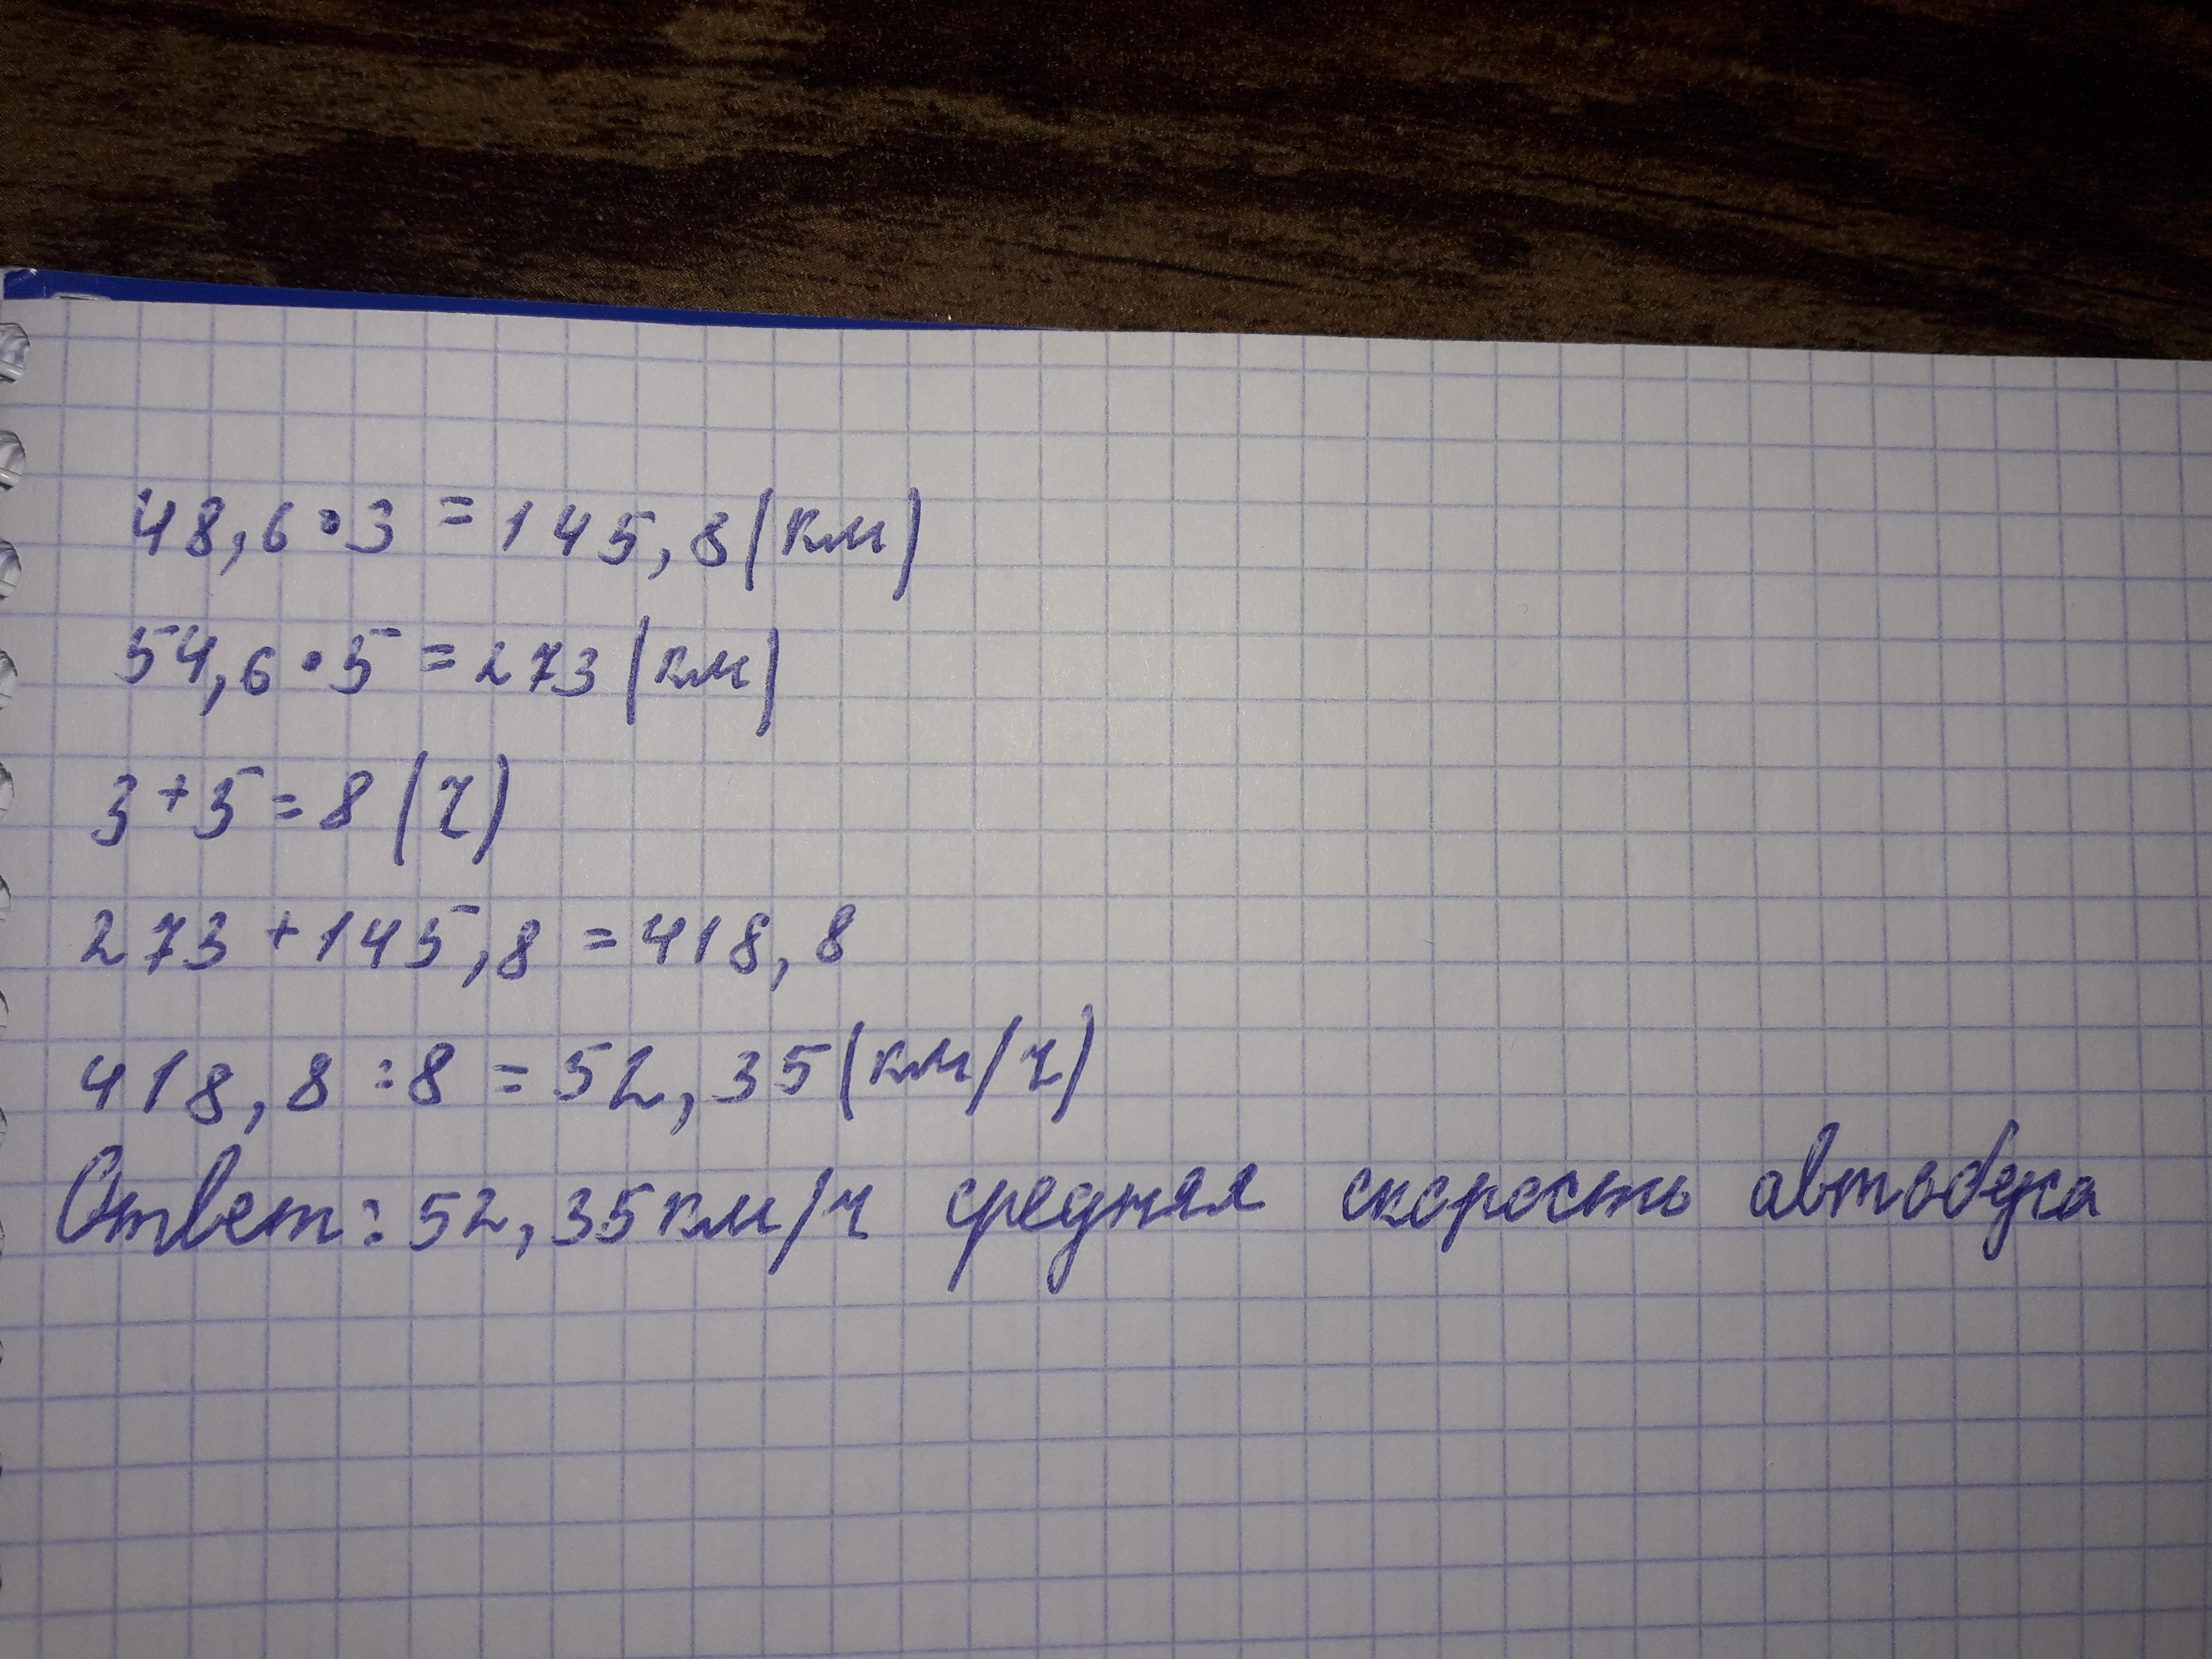 48,6•3=145,8(км)
54,6•5=273(км)
3+5=8(ч)
273+145,8=418,8
418,8:8=52,35(км/ч)
Ответ: 52,35км/ч средняя скорость автобуса